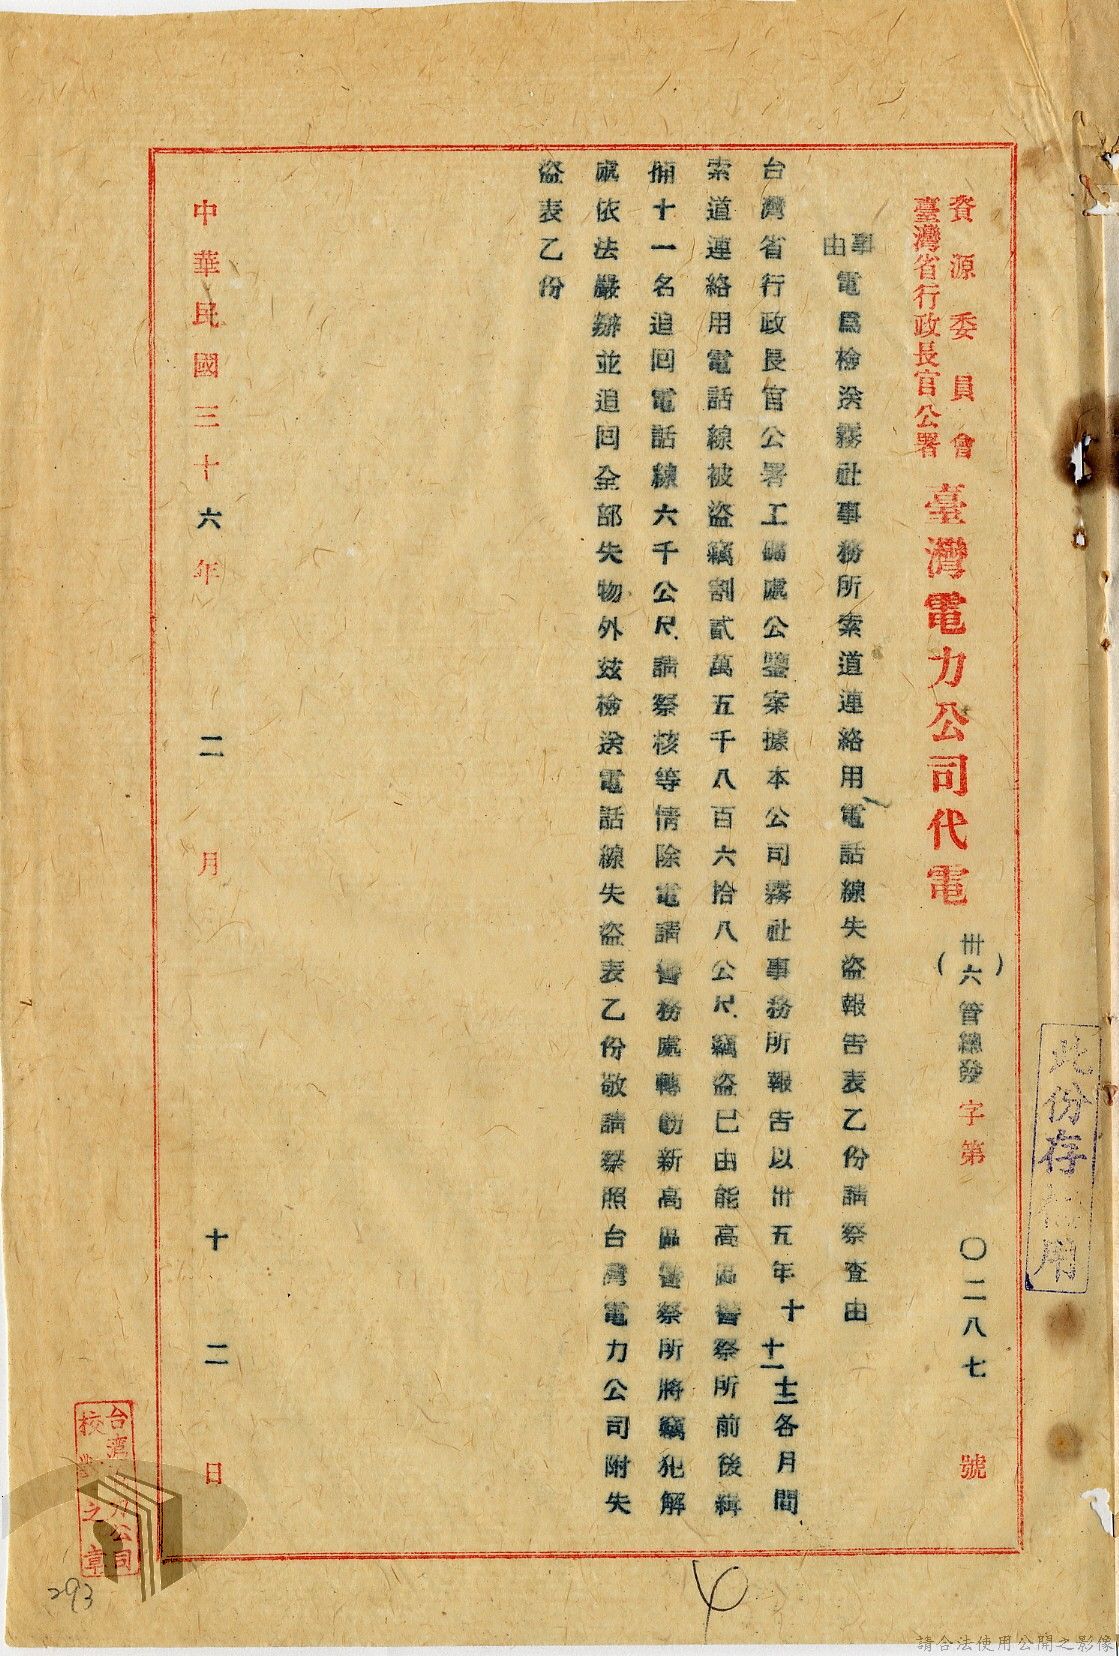 資源委員會
臺灣省行政長官公署
臺灣電力公司代電
(卅六)管總發字第〇二八七號
事由
電爲檢送霧社事務所索道連絡用電話線失盜報告表乙份請察查由
台灣省行政長官公署工礦處公鑒案據本公司霧社事務所報告以卅五年十十一十二各月間
索道連絡用電話線被盜竊割貳萬五千八百六拾八公尺竊盜已由能高區警察所前後緝
捕十一名追回電話線六千公尺請察核等情除電請警務處轉飭新高區警察所將竊犯解
處依法嚴辦並追回全部失物外玆檢送電話線失盜表乙份敬請察照台灣電力公司附失
盜表乙份
中華民國三十六年二月十二日
此份存備用
台灣電力公司
校對之章
293
請合法使用公開之影像